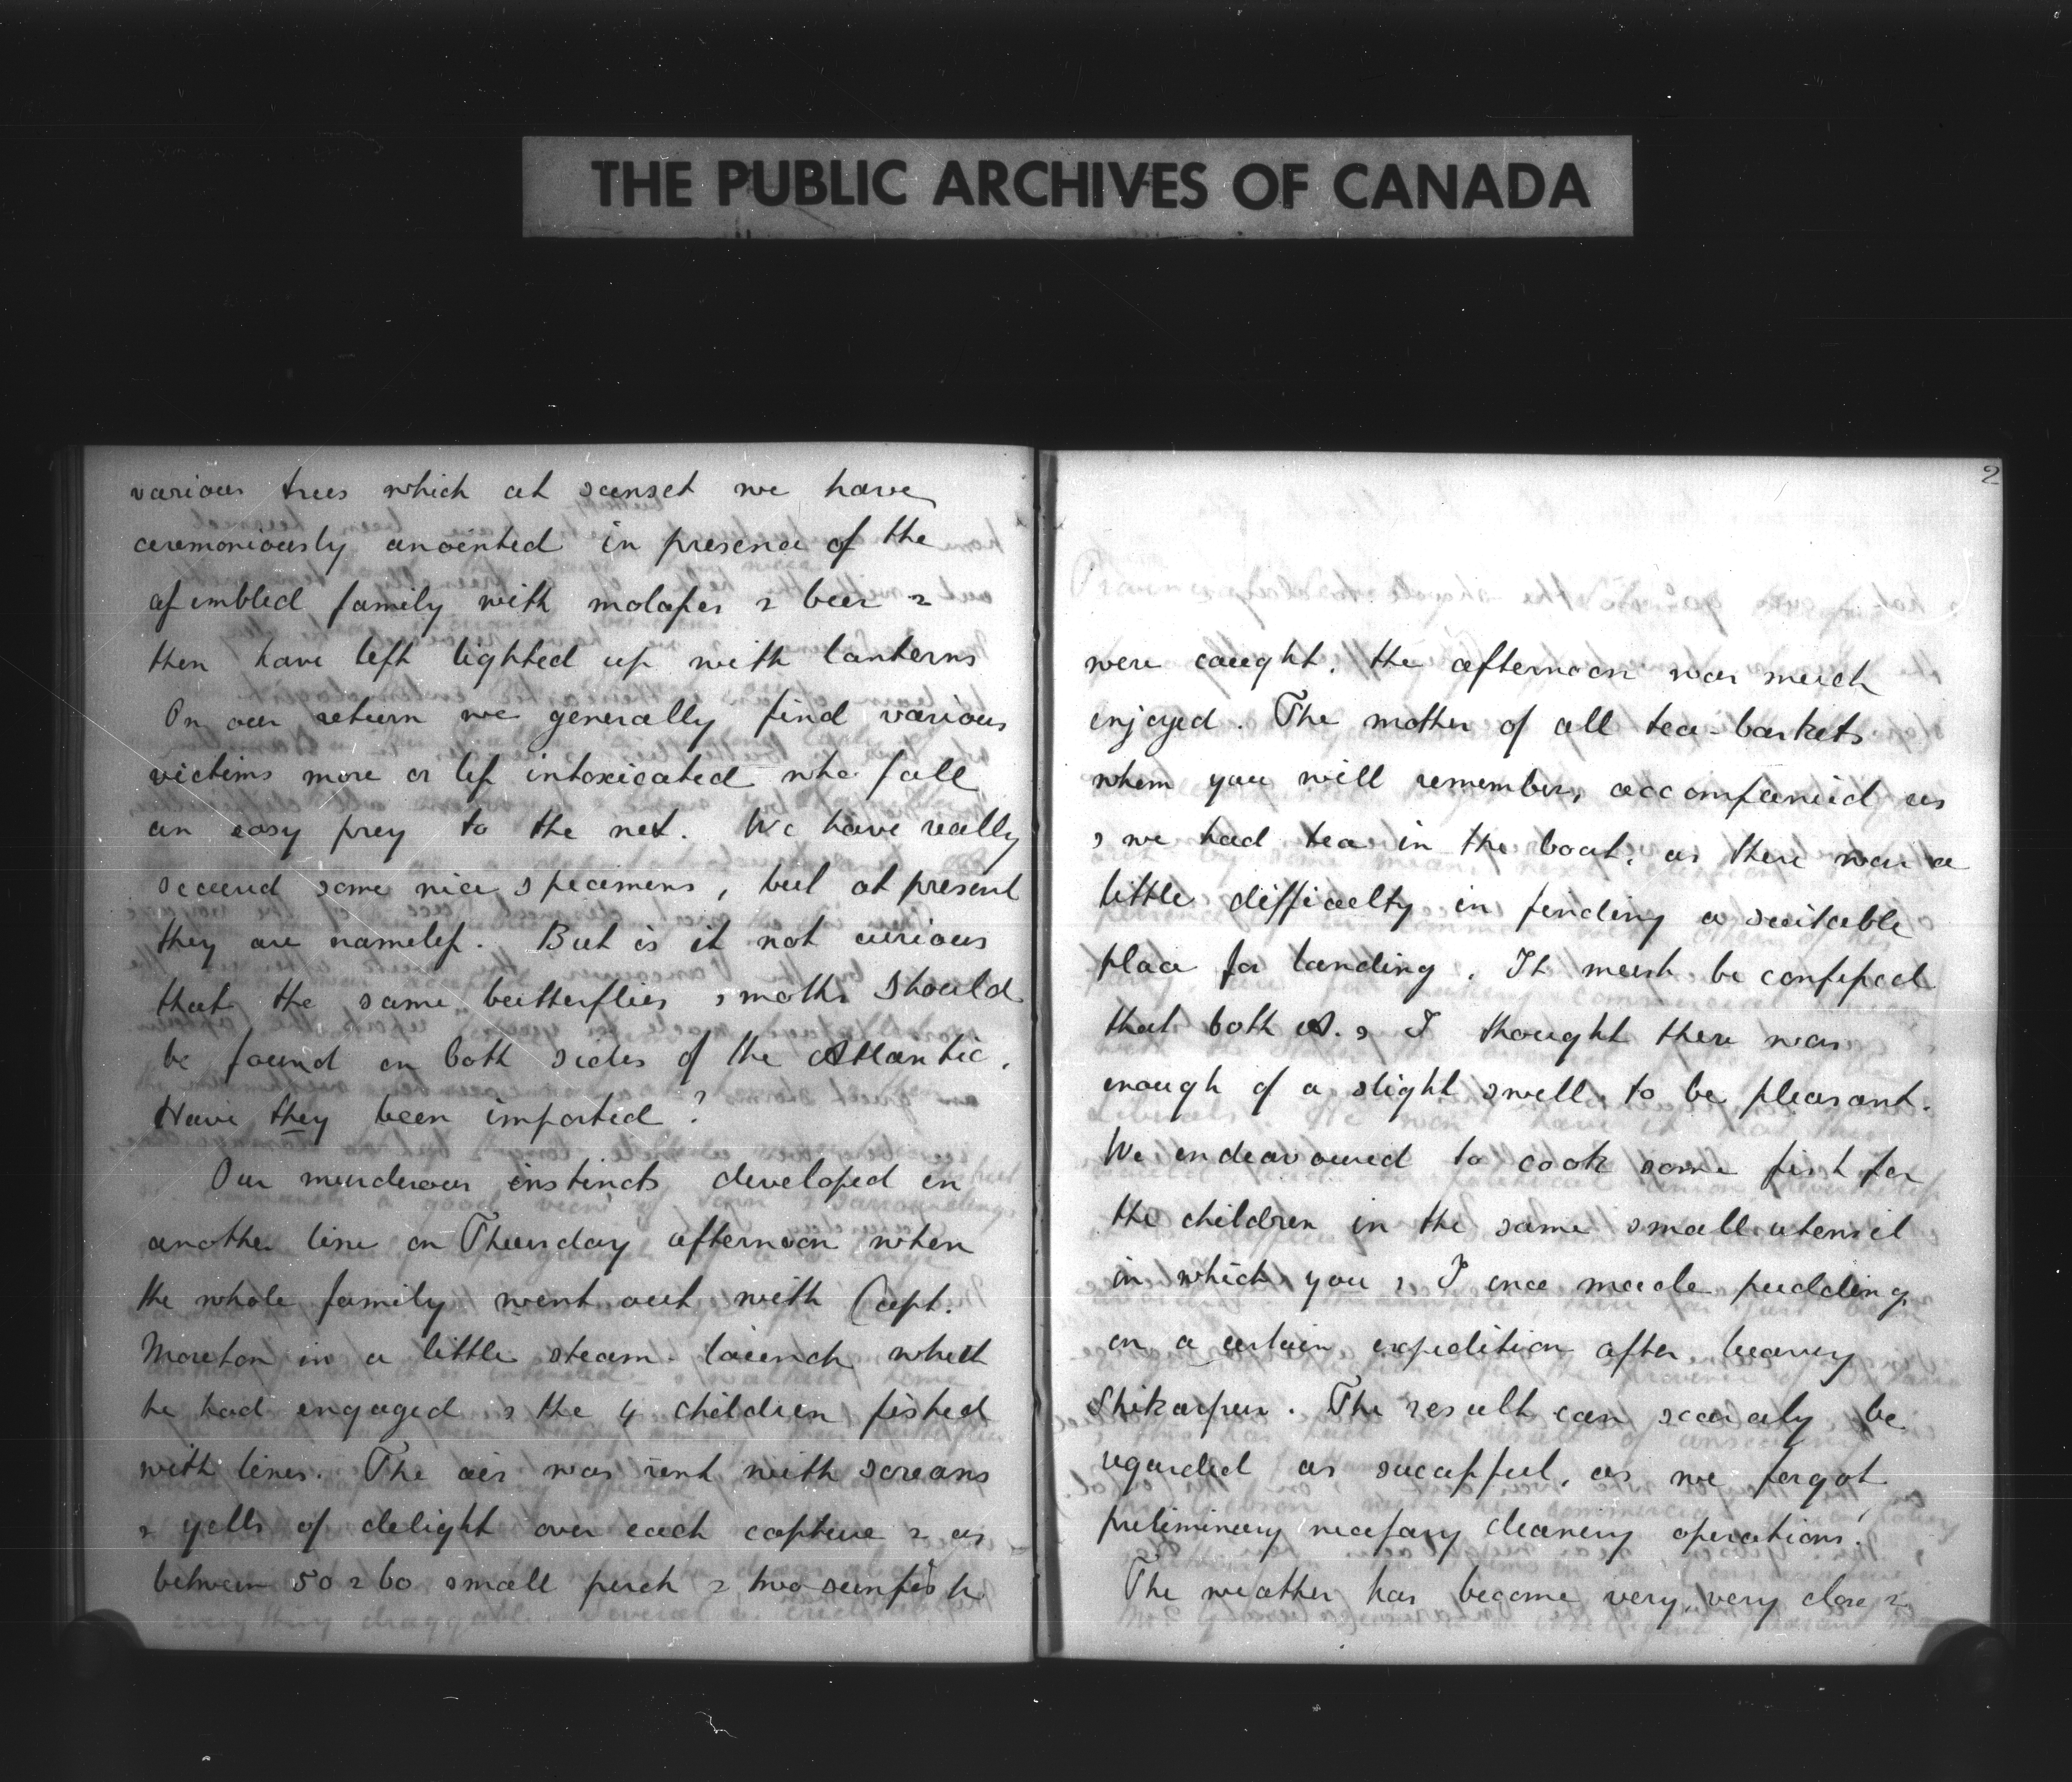 THE PUBLIC ARCHIVES OF CANADA
various trees which at sunset we have
ceremoniously anointed in presence of the
assembled family with molasses & beer &
then have left lighted up with lanterns
On our return we generally find various
victims more or less intoxicated who fall
an easy prey to the net. We have really
secured some nice specimens, but at present
they are nameless. But is it not curious
that the same butterflies & moths should
be found on both sides of the Atlantic.
Have they been imported?
Our murderous instincts developed in
another line on Thursday afternoon when
the whole family went out with Capt.
Moreton in a little steam-launch which
he had engaged & the 4 children fished
with lines. The air was rent with screams
& yells of delight over each capture & as
between 50 & 60 small perch & two sunfish
2
were caught, the afternoon was much
enjoyed. The mother of all tea-baskets
whom you will remember, accompanied us
& we had tea in the boat, as there was a
little difficulty in finding a suitable
place for landing. It must be confessed
that both A. & I thought there was
enough of a slight swell to be pleasant.
We endeavoured to cook some fish for
the children in the same small utensil
in which you & I once made pudding
on a certain expedition after leaving
Shikarpur. The result can scarcely be
regarded as successful, as we forgot
preliminary necessary cleaning operations!
The weather has become very, very close &